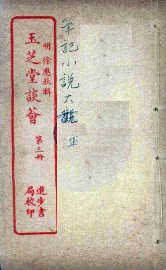 筆記小說大觀 集
明 徐應秋輯
玉芝堂談薈
第三冊
進步書
局校印